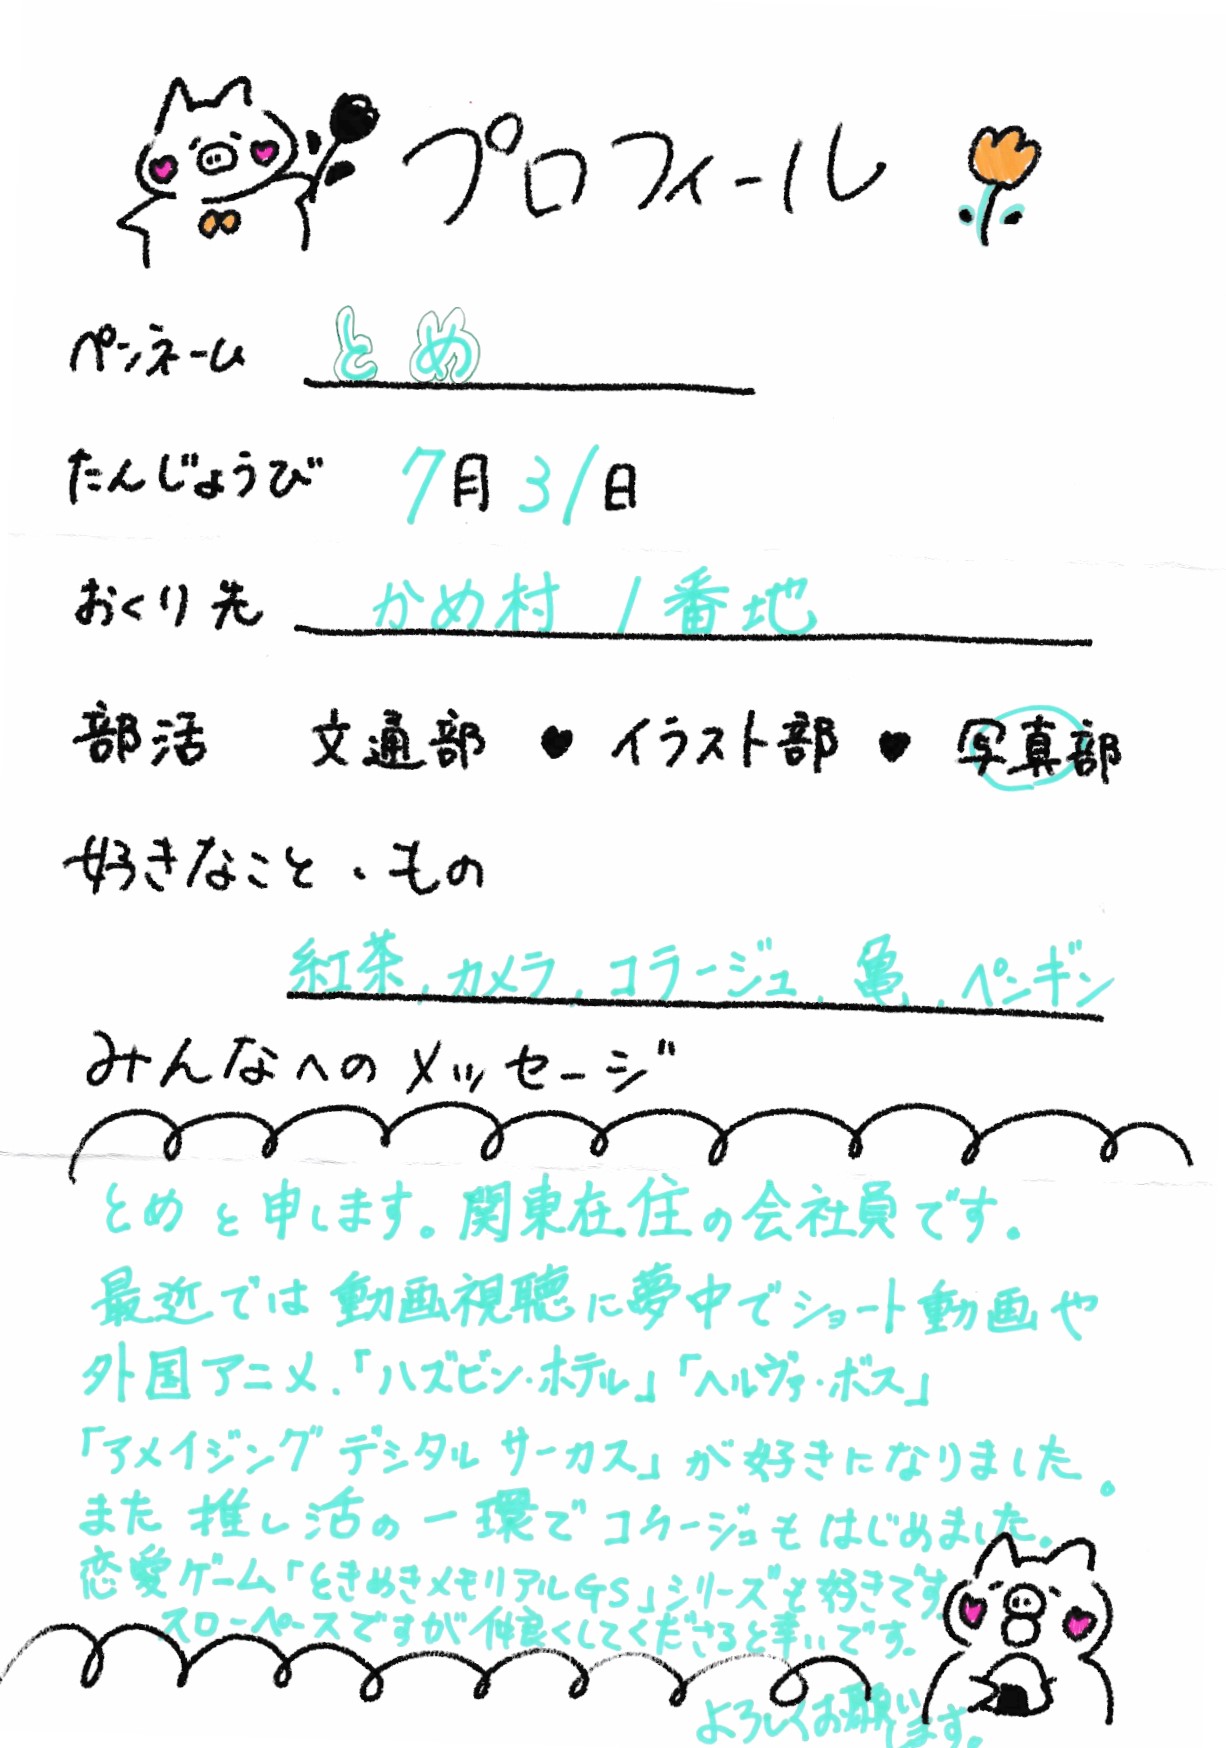 プロフィール
ペンネーム とめ
たんじょうび 7月31日
おくり先 かめ村 1番地
部活 文通部 ♥ イラスト部 ♥ 写真部
好きなこと・もの
紅茶、カメラ、コラージュ、亀、ペンギン
みんなへのメッセージ
とめと申します。関東在住の会社員です。
最近では動画視聴に夢中でショート動画や
外国アニメ、「ハズビン・ホテル」「ヘルヴァ・ボス」
「アメイジング デジタル サーカス」が好きになりました。
また推し活の一環でコラージュもはじめました。
恋愛ゲーム「ときめきメモリアルGS」シリーズも好きです
スローペースですが仲良くしてくださると幸いです。
よろしくお願いします。